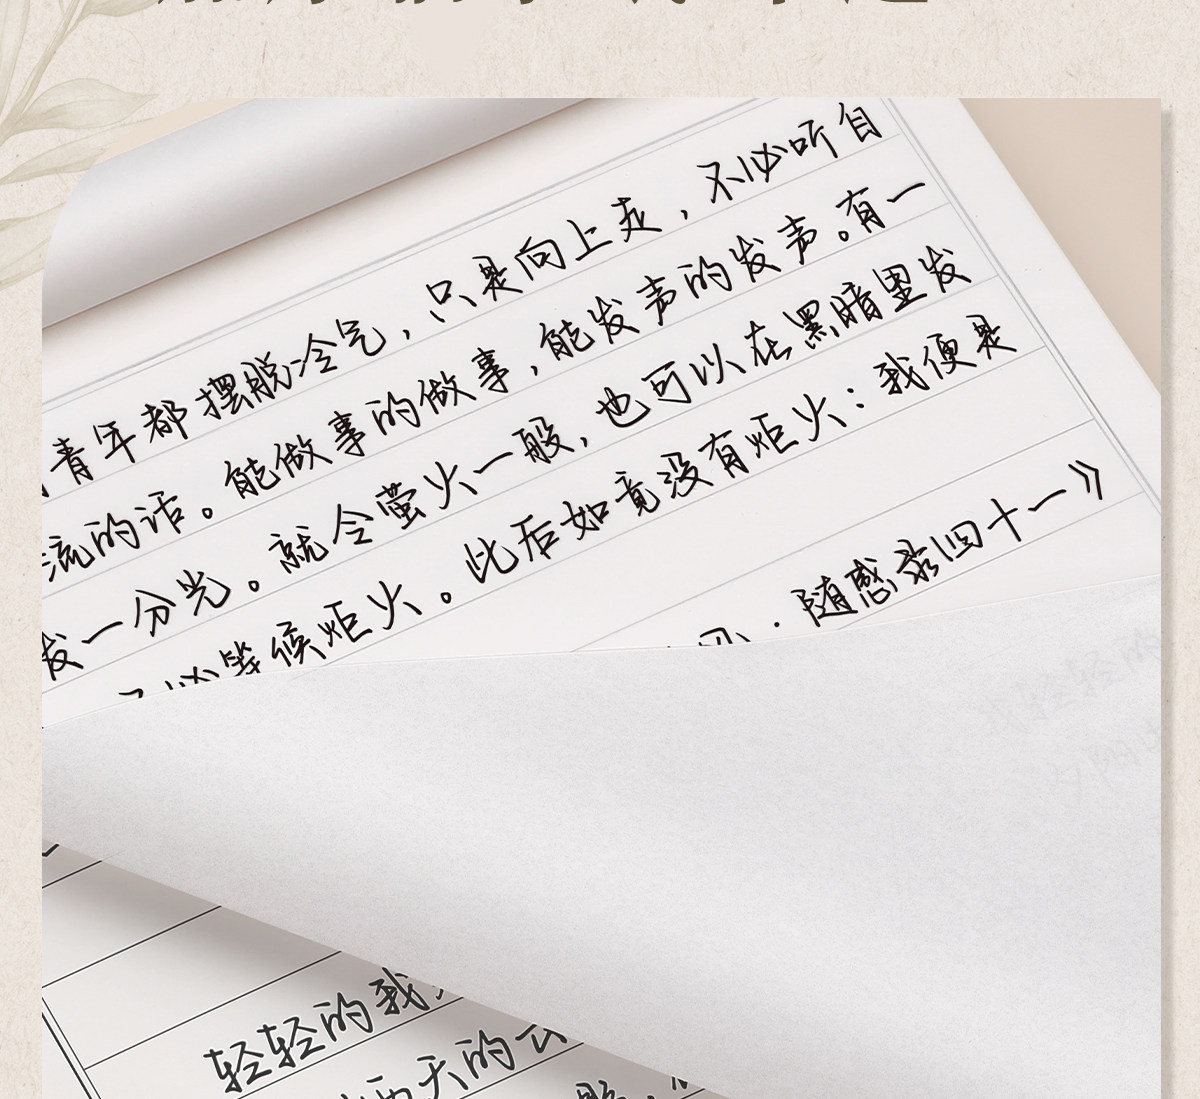 青年都摆脱冷气，只是向上走，不必听自
流的话。能做事的做事，能发声的发声。有一
发一分光。就令萤火一般，也可以在黑暗里发
不必等候炬火。此后如竟没有炬火：我便是
风·随感录四十一》
轻轻的我
西天的云